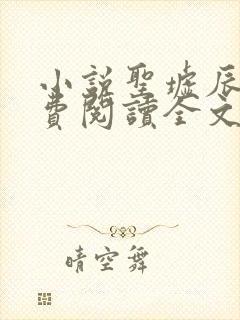 小説聖墟辰
費閱讀全文
晴空舞